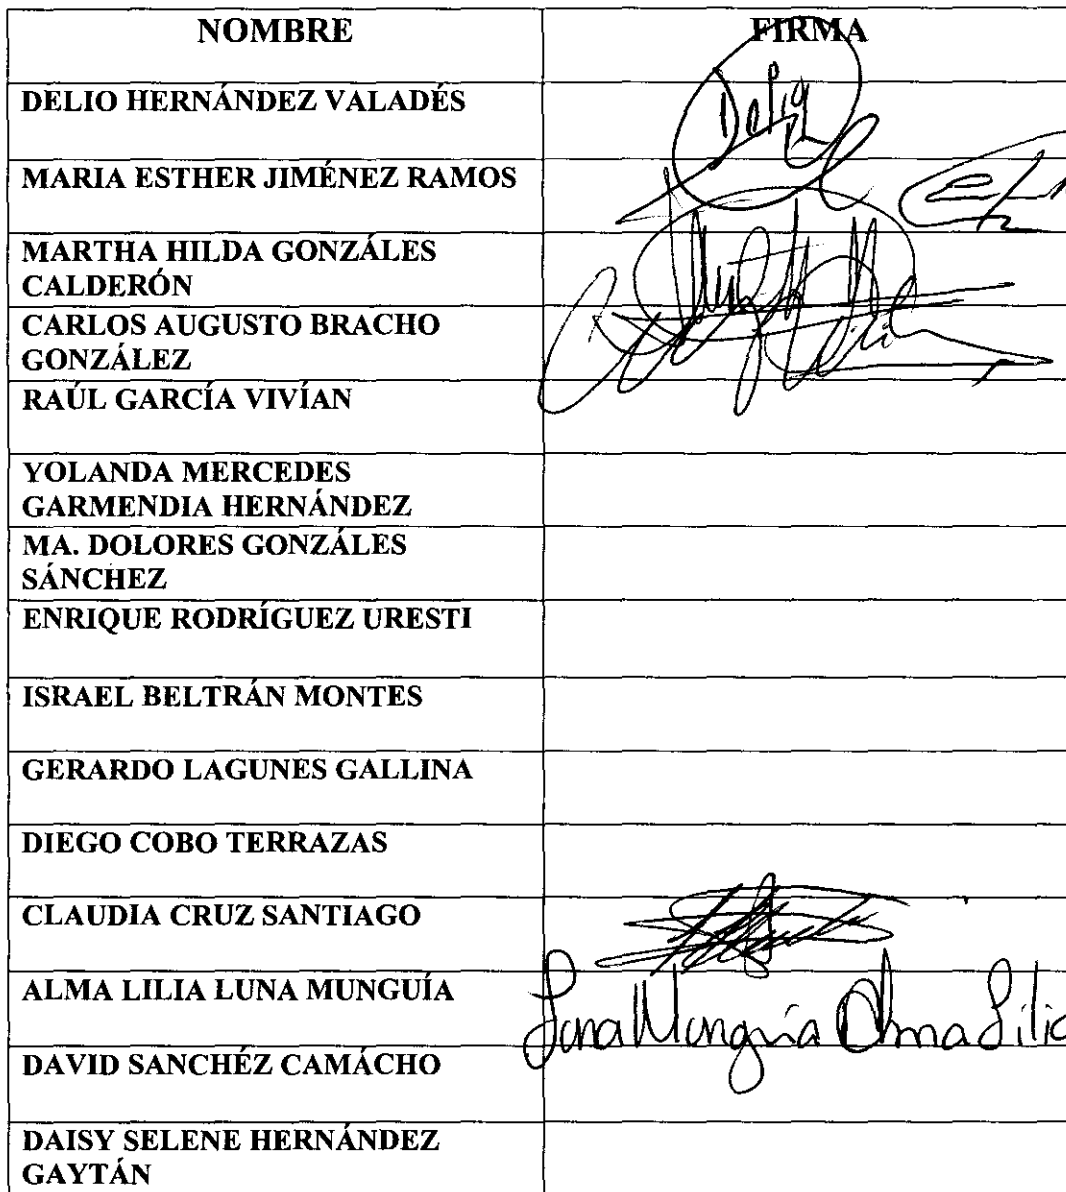 NOMBRE FIRMA
DELIO HERNÁNDEZ VALADÉS
Delio
MARIA ESTHER JIMÉNEZ RAMOS
MARTHA HILDA GONZÁLES
CALDERÓN
CARLOS AUGUSTO BRACHO
GONZÁLEZ
RAÚL GARCÍA VIVÍAN
YOLANDA MERCEDES
GARMENDIA HERNÁNDEZ
MA. DOLORES GONZÁLES
SÁNCHEZ
ENRIQUE RODRÍGUEZ URESTI
ISRAEL BELTRÁN MONTES
GERARDO LAGUNES GALLINA
DIEGO COBO TERRAZAS
CLAUDIA CRUZ SANTIAGO
ALMA LILIA LUNA MUNGUÍA
Luna Munguía Alma Lilia
DAVID SANCHÉZ CAMÁCHO
DAISY SELENE HERNÁNDEZ
GAYTÁN